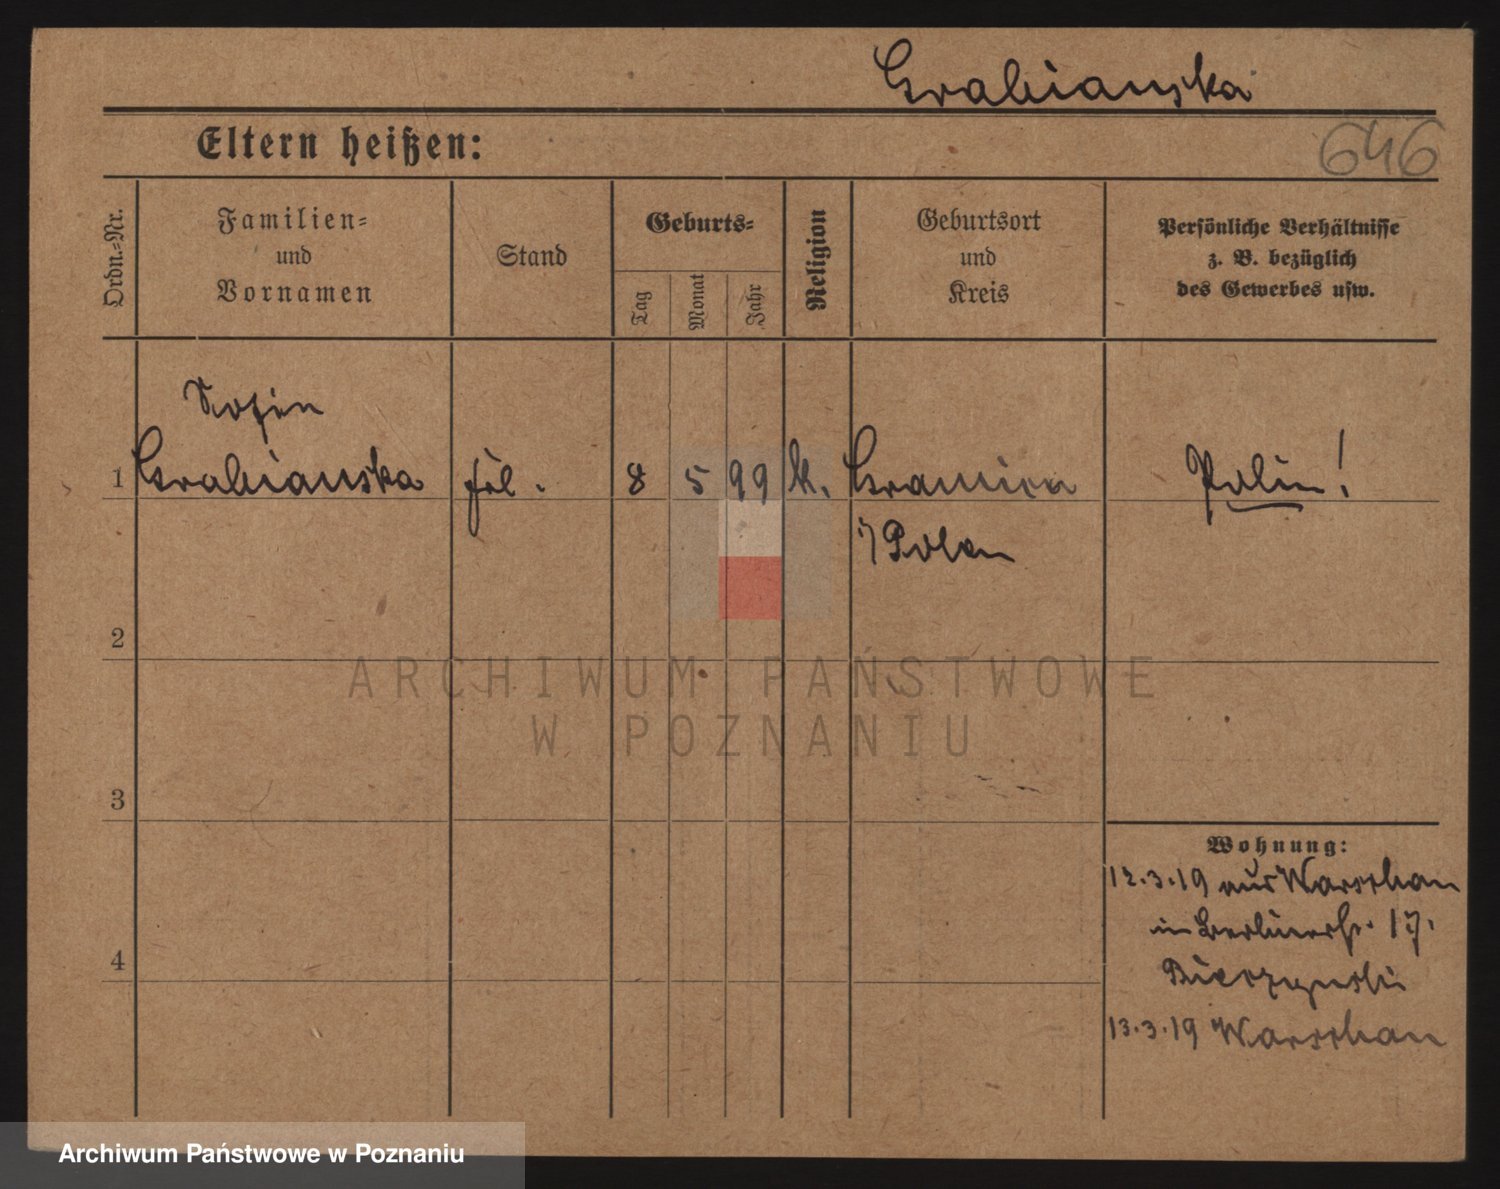 Grabianska
Eltern heißen:
646
Ordn.-Nr.
Familien-
und
Vornamen
Stand
Geburts-
Tag
Monat
Jahr
Religion
Geburtsort
und
Kreis
Persönliche Verhältnisse
z. B. bezüglich
des Gewerbes usw.
Sofia
1 Grabianska frl. 8 5 99 k. Polin!
i/ Polen
2
ARCHIWUM PAŃSTWOWE
W POZNANIU
3
Wohnung:
12.3.19 aus Warschau
in Berlinerstr. 17.
4
Bierzynski
13.3.19 Warschau
Archiwum Państwowe w Poznaniu